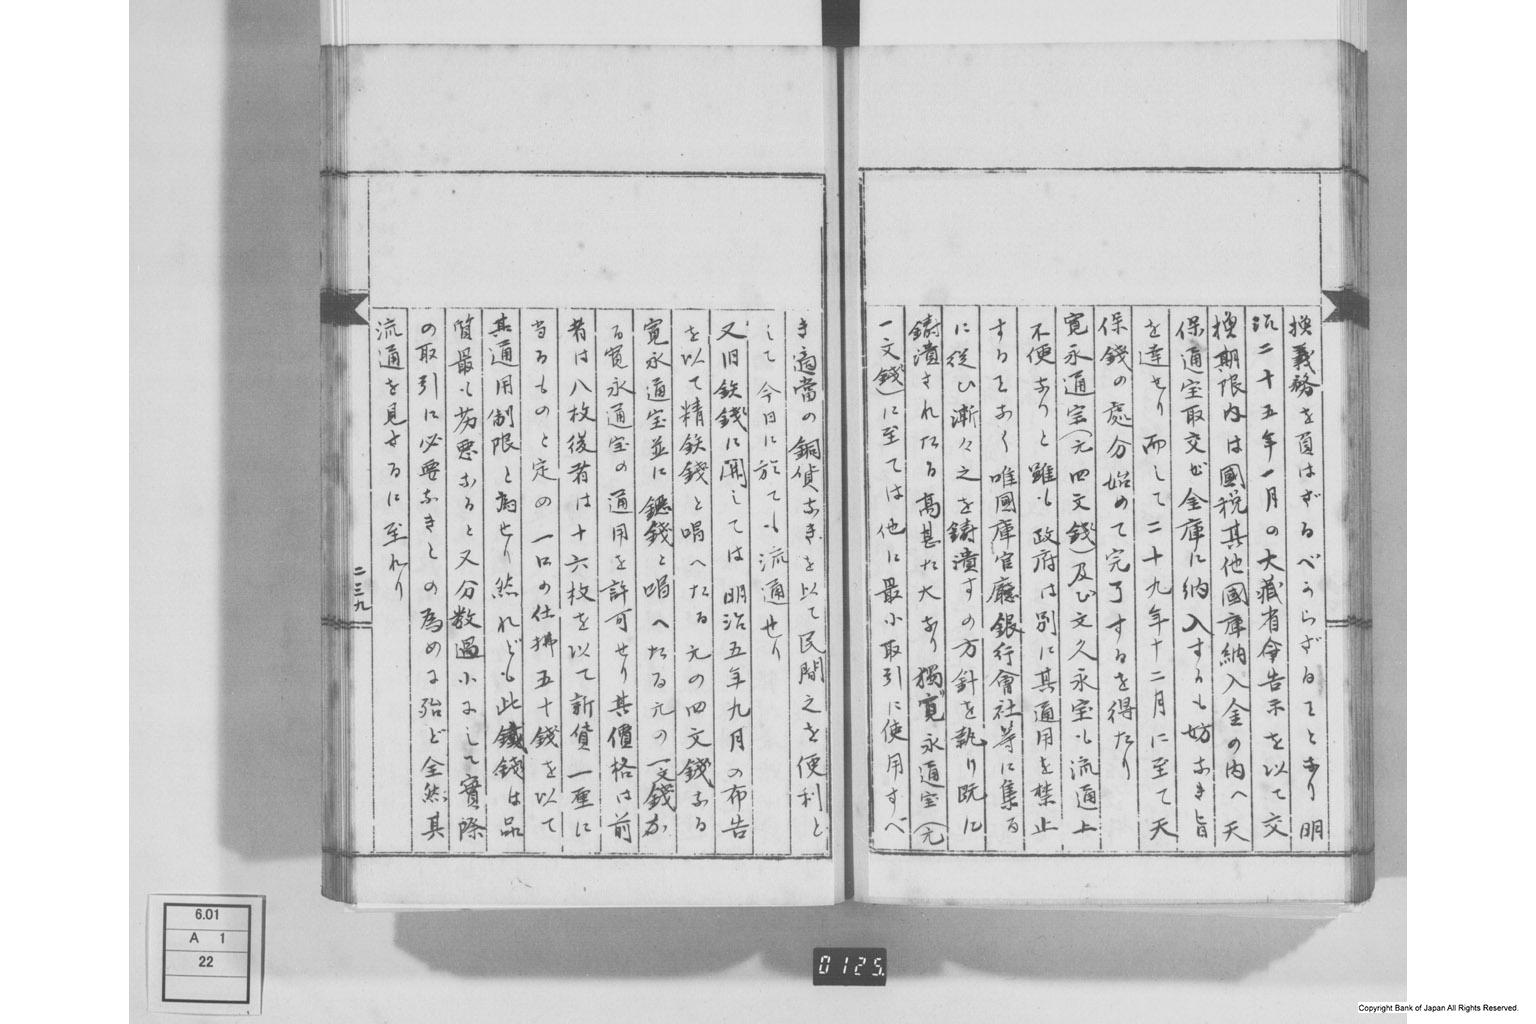 換義務を負はざるべからざることゝなり明
治二十五年一月の大藏省令告示を以て交
換期限内は國税其他國庫納入金の内へ天
保通宝取交ぜ金庫に納入するも妨なき旨
を達せり而して二十九年十二月に至て天
保錢の處分始めて完了するを得たり
寛永通宝(元四文錢)及び文久永宝も流通上
不便なりと雖も政府は別に其通用を禁止
することなく唯國庫官廳銀行會社等に集る
に従ひ漸々之を鋳潰すの方針を執り既に
鋳潰されたる高甚だ大なり獨寛永通宝(元
一文錢)に至ては他に最小取引に使用すべ
き適當の銅貨なきを以て民間之を便利と
して今日に於ても流通せり
又旧鉄錢に関しては明治五年九月の布告
を以て精鉄錢と唱へたる元の四文錢なる
寛永通宝並に鐚錢と唱へたる元の一文錢な
る寛永通宝の通用を許可せり其價格は前
者は八枚後者は十六枚を以て新貨一厘に
当るものと定め一口の仕拂五十錢を以て
其通用制限と為せり然れども此鐵錢は品
質最も劣悪なると又分数過小にして實際
の取引に必要なきとの為めに殆ど全然其
流通を見ざるに至れり
二三九
6.01
A 1
22
0125
Copyright Bank of Japan All Rights Reserved.